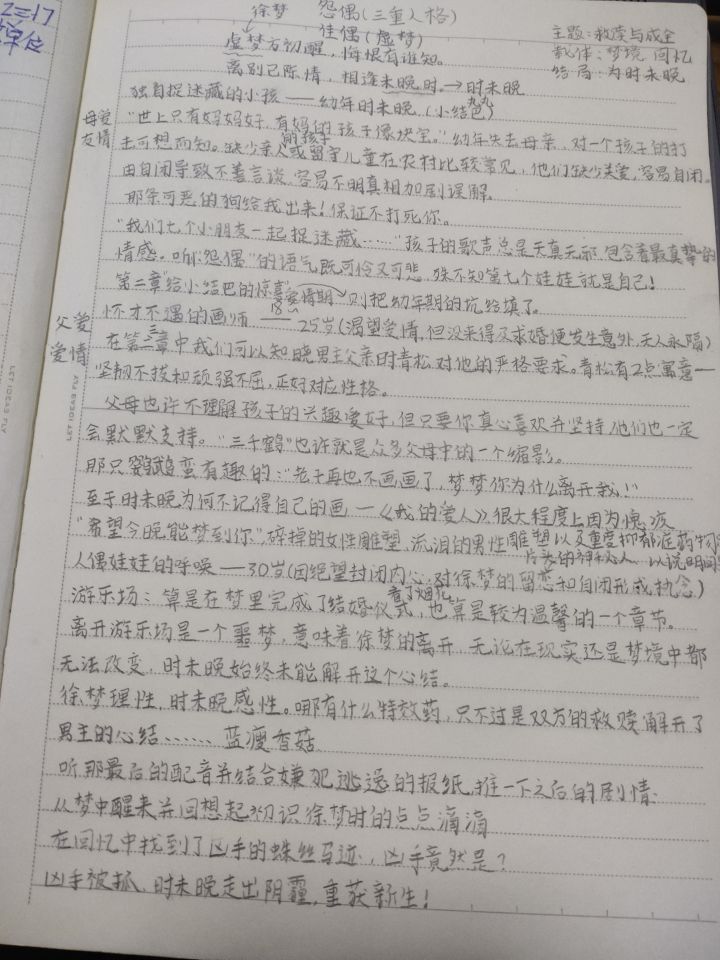 徐梦 怨偶(三重人格)
佳偶(虚梦)
主题:救赎与成全
虚梦方初醒,悔恨有谁知。
载体:梦境 回忆
离别已陈情,相逢未晚时。→时未晚
结局:为时未晚
独自捉迷藏的小孩——幼年时未晚(小结巴)
九九
母爱
友情
"世上只有妈妈好,有妈的孩子像块宝。"幼年失去母亲,对一个孩子的打
击可想而知。缺少亲人的孩子或留守儿童在农村比较常见,他们缺少关爱,容易自闭。
由自闭导致不善言谈,容易不明真相加剧误解。
那条可恶的狗给我出来!保证不打死你。
"我们七个小朋友一起捉迷藏……"孩子的歌声总是天真无邪,包含着最真挚的
情感。听"怨偶"的语气既可怜又可悲,殊不知第七个娃娃就是自己!
第二章"给小结巴的惊喜"则把幼年期的坑给填了。
恋爱情期
18~
怀才不遇的画师——25岁(渴望爱情,但没来得及求婚便发生意外,天人永隔)
父爱
爱情
在第三章中我们可以知晓男主父亲时青松对他的严格要求。青松有2点寓意—
坚韧不拔和顽强不屈,正好对应性格。
父母也许不理解孩子的兴趣爱好,但只要你真心喜欢并坚持,他们也一定
会默默支持。"三千鹤"也许就是众多父母中的一个缩影。
那只鹦鹉蛮有趣的:"老子再也不画画了,梦梦你为什么离开我!"
至于时未晚为何不记得自己的画—《我的爱人》很大程度上因为愧疚
"希望今晚能梦到你",碎掉的女性雕塑,流泪的男性雕塑以及重度抑郁症药物
片头的神秘人 以说明
人偶娃娃的呼唤——30岁(因绝望封闭内心:对徐梦的留恋和自闭形成执念)
看了烟花
游乐场:算是在梦里完成了结婚仪式,也算是较为温馨的一个章节。
离开游乐场是一个噩梦,意味着徐梦的离开,无论在现实还是梦境中都
无法改变,时未晚始终未能解开这个心结。
徐梦理性,时未晚感性。哪有什么特效药,只不过是双方的救赎解开了
男主的心结…… 蓝瘦香菇
听那最后的配音并结合嫌犯逃逸的报纸,推一下之后的剧情:
从梦中醒来并回想起初识徐梦时的点点滴滴
在回忆中找到了凶手的蛛丝马迹,凶手竟然是?
凶手被抓,时未晚走出阴霾,重获新生!
LET IDEAS FLY
LET IDEAS FLY
单位